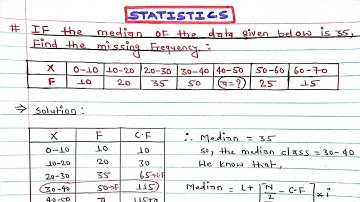 STATISTICS
# IF the median of the data given below is 35,
Find the missing Frequency:
X 0-10 10-20 20-30 30-40 40-50 50-60 60-70
F 10 20 35 50 a=? 25 15
⇒ Solution:
X F C.F
0-10 10 10
10-20 20 30
20-30 35 65→C.F
30-40 50→F 115
40-50
∴ Median = 35
So, the median class = 30-40
We know that,
Median = L+ [N/2 - C.F] × i